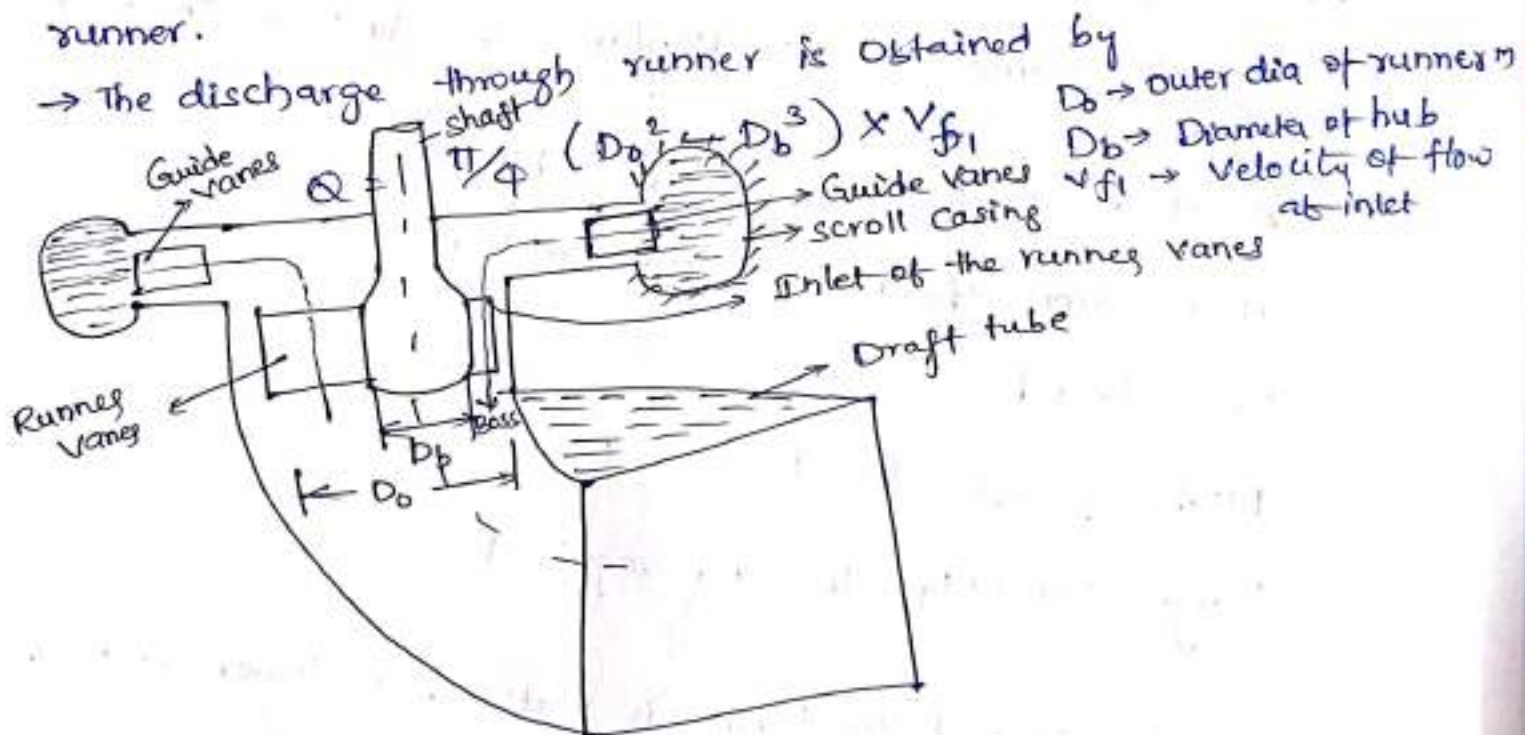 runner.
→ The discharge through runner is obtained by
Q = π/4 (D₀² - D_b³) × V_f1
D₀ → outer dia of runner
D_b → Diameter of hub
V_f1 → Velocity of flow
at inlet
shaft
Guide
vanes
Guide vanes
scroll casing
Inlet of the runner vanes
Draft tube
Runner
vanes
Boss
D_b
D₀